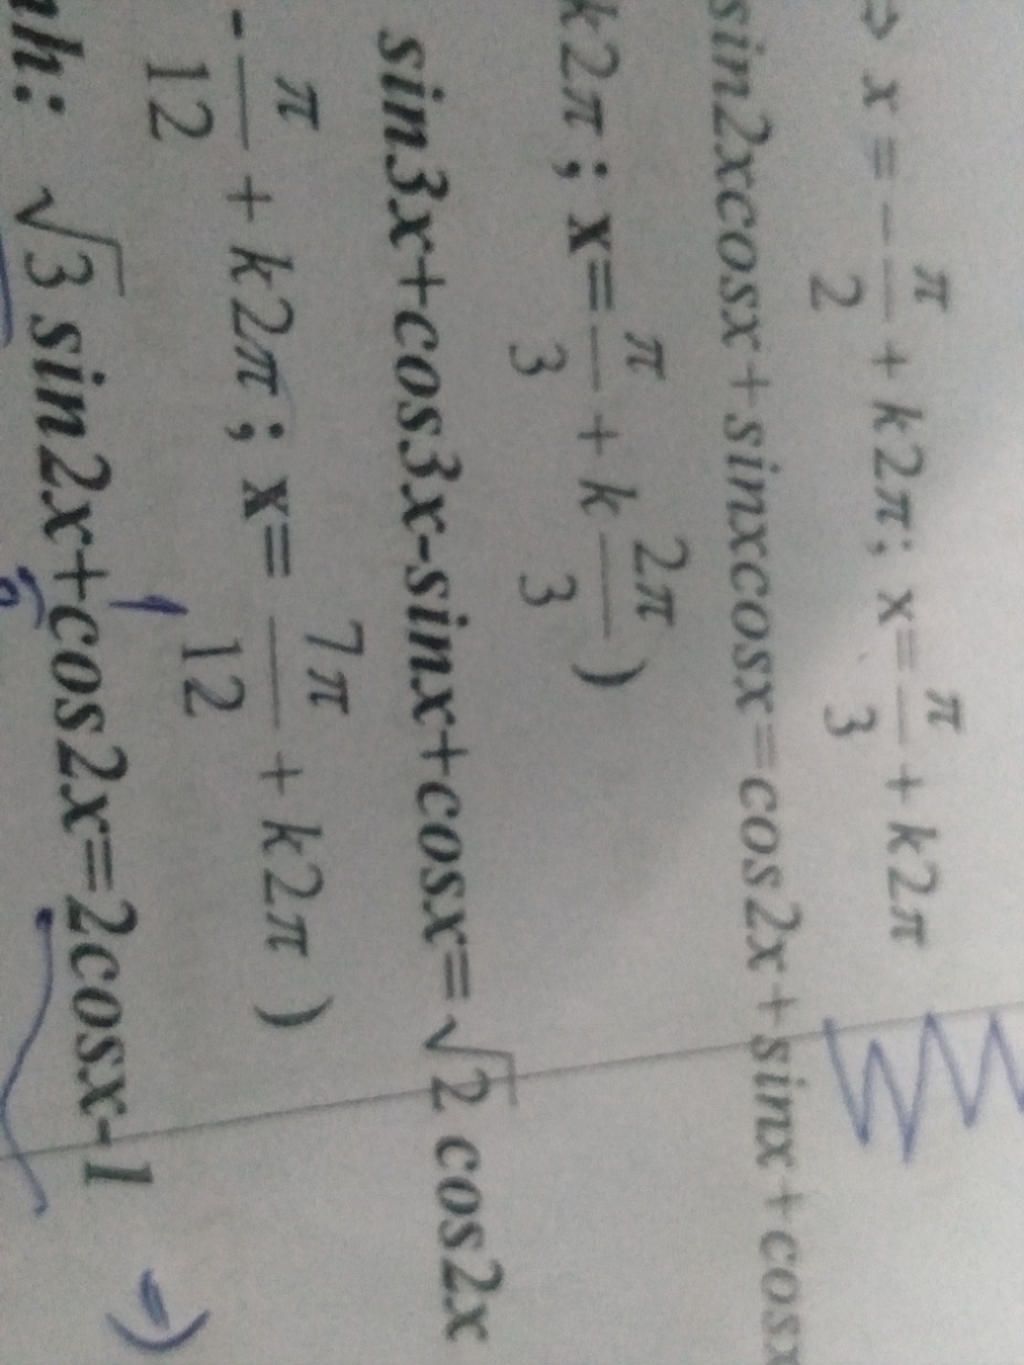 ⇒ x = -π/2 + k2π; x=π/3 + k2π
sin2xcosx+sinxcosx=cos2x+sinx+cosx
k2π ; x=π/3 + k 2π/3 )
sin3x+cos3x-sinx+cosx=√2 cos2x
-π/12 + k2π ; x= 7π/12 + k2π )
nh: √3 sin2x+cos2x=2cosx-1